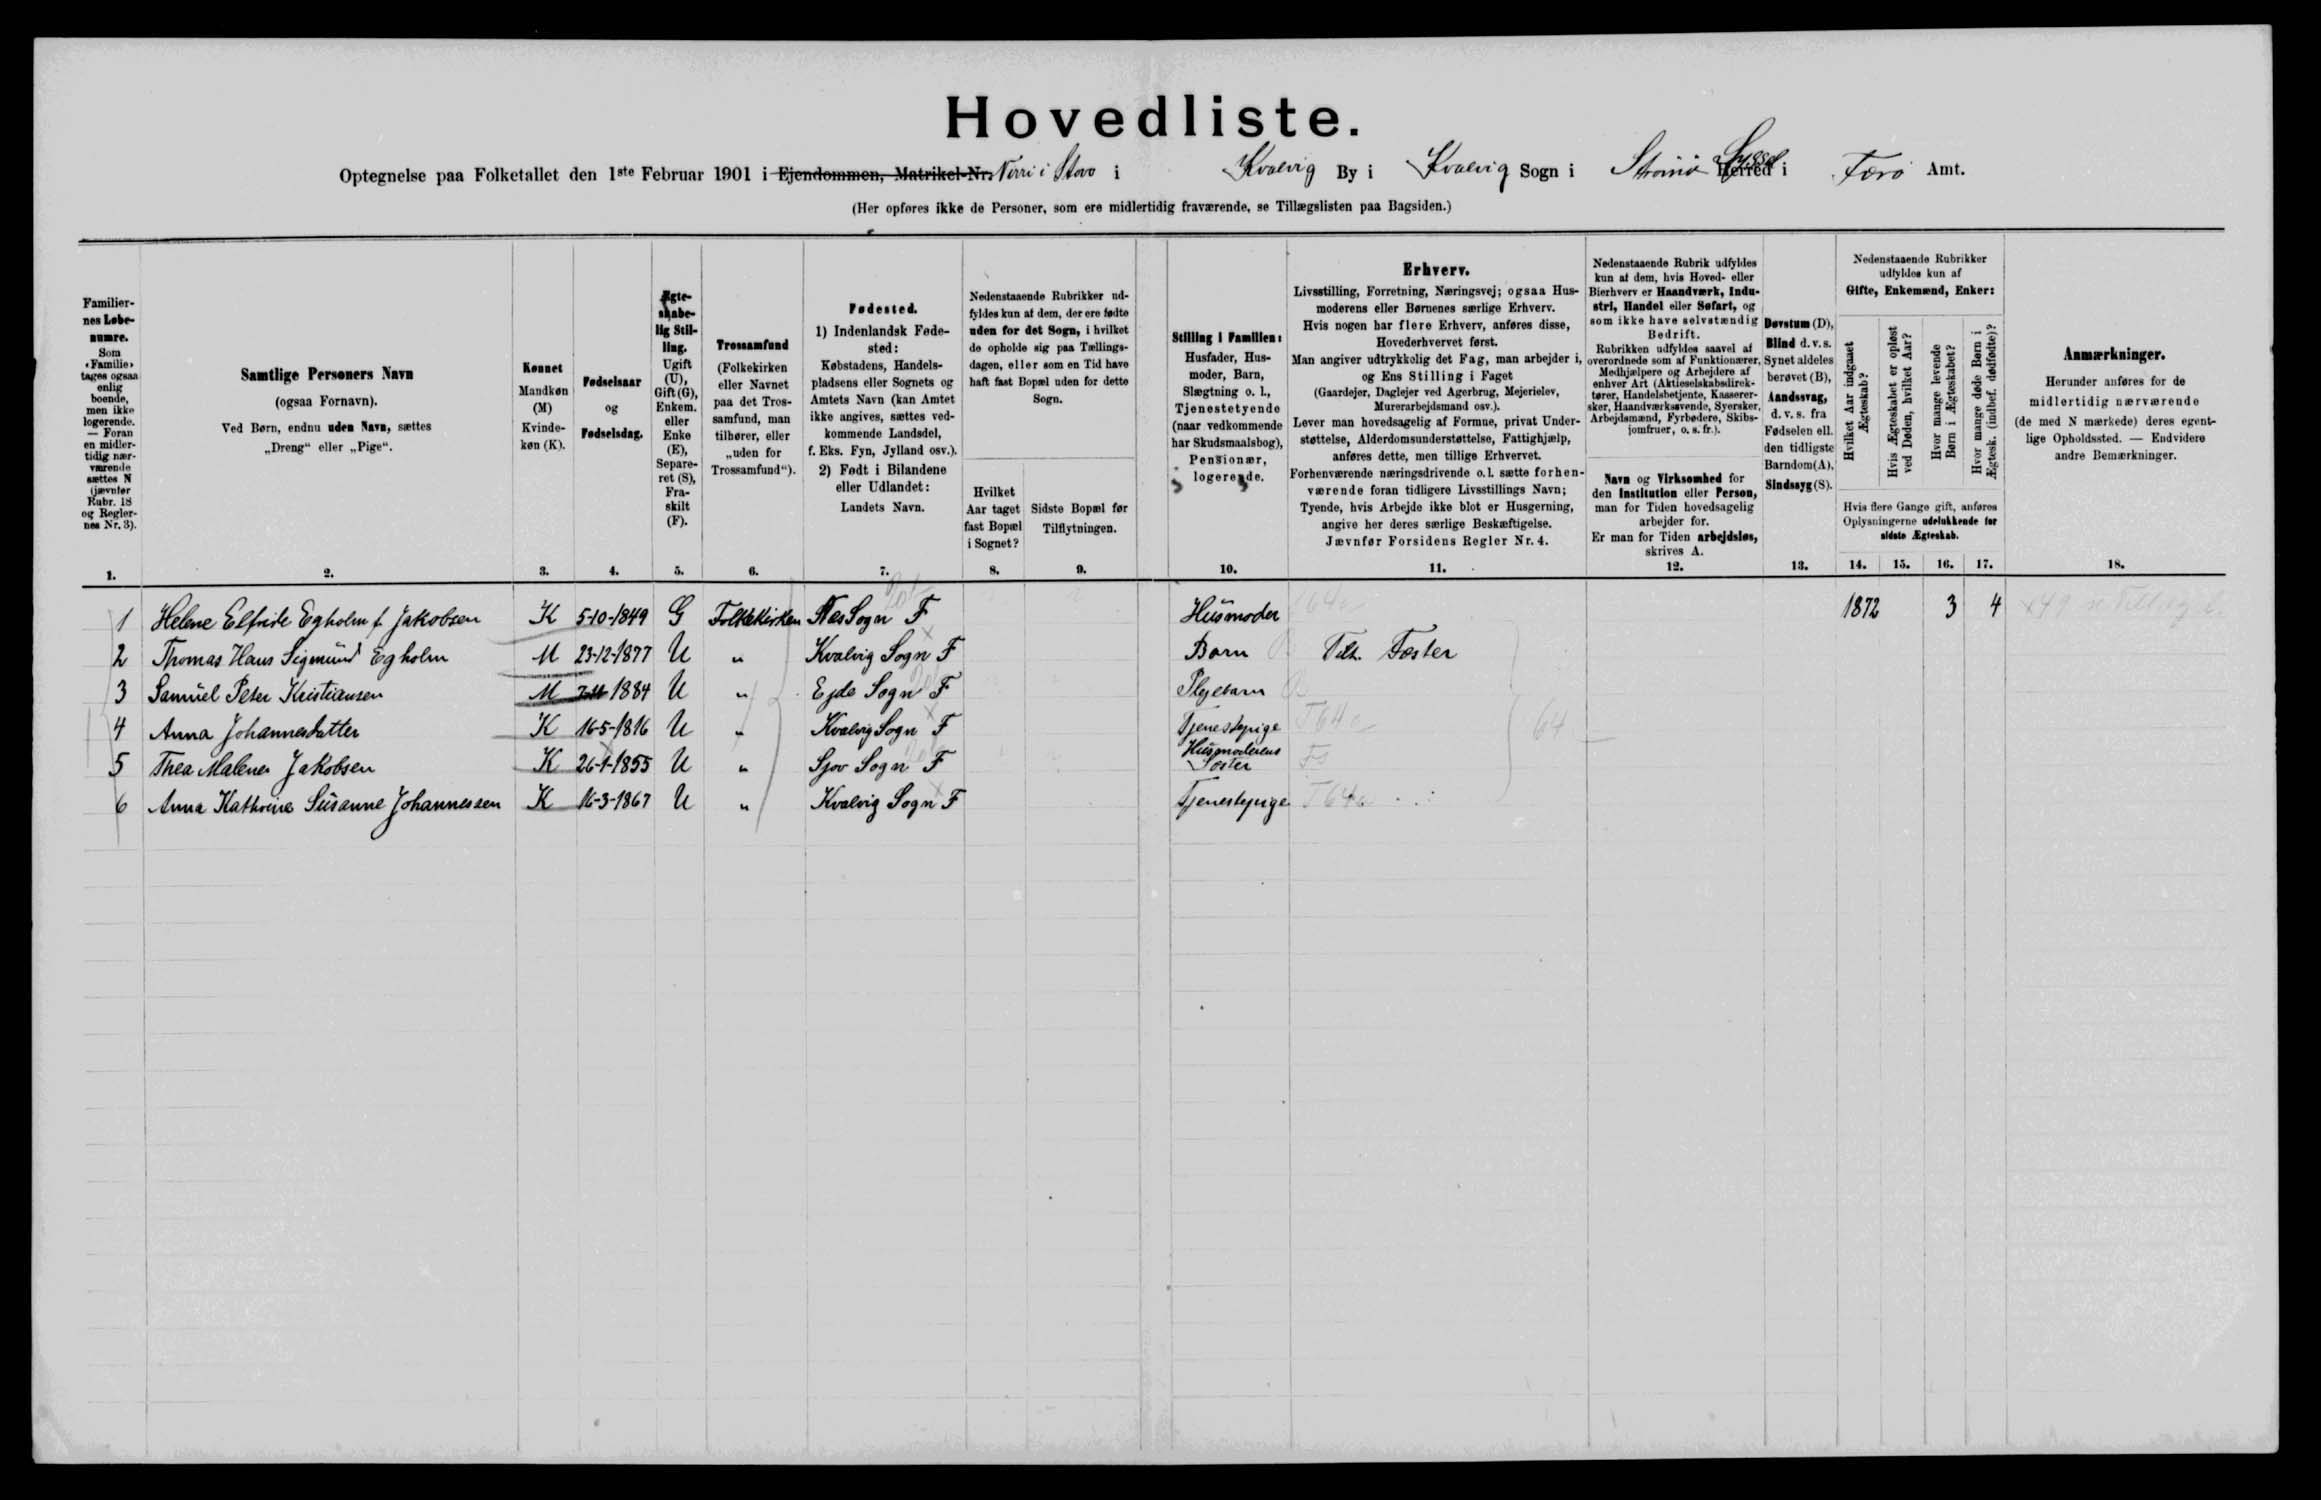 Hovedliste.
Optegnelse paa Folketallet den 1ste Februar 1901 i Ejendommen, Matrikel-Nr. Nirri i Stovo i Kvalvig By i Kvalvig Sogn i Strømø Herred Syssel i Færø Amt.
(Her opføres ikke de Personer, som ere midlertidig fraværende, se Tillægslisten paa Bagsiden.)
Familiernes Løbenumre.
Som «Familie» tages ogsaa enlig boende, men ikke logerende. — Foran en midlertidig nærværende sættes N (jævnfør Rubr. 18 og Reglernes Nr. 3).
1.
Samtlige Personers Navn
(ogsaa Fornavn).
Ved Børn, endnu uden Navn, sættes
„Dreng“ eller „Pige“.
2.
Kønnet
Mandkøn (M)
Kvindekøn (K).
3.
Fødselsaar
og
Fødselsdag.
4.
Ægteskabelig Stilling.
Ugift (U), Gift (G), Enkem. eller Enke (E), Separeret (S), Fraskilt (F).
5.
Trossamfund
(Folkekirken eller Navnet paa det Trossamfund, man tilhører, eller „uden for Trossamfund“).
6.
Fødested.
1) Indenlandsk Fødested:
Købstadens, Handelspladsens eller Sognets og Amtets Navn (kan Amtet ikke angives, sættes vedkommende Landsdel, f. Eks. Fyn, Jylland osv.).
2) Født i Bilandene eller Udlandet:
Landets Navn.
7.
Nedenstaaende Rubrikker udfyldes kun af dem, der ere fødte uden for det Sogn, i hvilket de opholde sig paa Tællingsdagen, eller som en Tid have haft fast Bopæl uden for dette Sogn.
Hvilket Aar taget fast Bopæl i Sognet?
8.
Sidste Bopæl før Tilflytningen.
9.
Stilling i Familien:
Husfader, Husmoder, Barn, Slægtning o. l., Tjenestetyende (naar vedkommende har Skudsmaalsbog), Pensionær, logerende.
10.
Erhverv.
Livsstilling, Forretning, Næringsvej; ogsaa Husmoderens eller Børnenes særlige Erhverv.
Hvis nogen har flere Erhverv, anføres disse, Hovederhvervet først.
Man angiver udtrykkelig det Fag, man arbejder i, og Ens Stilling i Faget
(Gaardejer, Daglejer ved Agerbrug, Mejerielev, Murerarbejdsmand osv.).
Lever man hovedsagelig af Formue, privat Understøttelse, Alderdomsunderstøttelse, Fattighjælp, anføres dette, men tillige Erhvervet.
Forhenværende næringsdrivende o. l. sætte forhenværende foran tidligere Livsstillings Navn; Tyende, hvis Arbejde ikke blot er Husgerning, angive her deres særlige Beskæftigelse.
Jævnfør Forsidens Regler Nr. 4.
11.
Nedenstaaende Rubrik udfyldes kun af dem, hvis Hoved- eller Bierhverv er Haandværk, Industri, Handel eller Søfart, og som ikke have selvstændig Bedrift.
Rubrikken udfyldes saavel af overordnede som af Funktionærer, Medhjælpere og Arbejdere af enhver Art (Aktieselskabsdirektører, Handelsbetjente, Kasserersker, Haandværkssvende, Syersker, Arbejdsmænd, Fyrbødere, Skibsjomfruer, o. s. fr.).
Navn og Virksomhed for den Institution eller Person, man for Tiden hovedsagelig arbejder for.
Er man for Tiden arbejdsløs, skrives A.
12.
Døvstum (D), Blind d. v. s. Synet aldeles berøvet (B), Aandssvag, d. v. s. fra Fødselen ell. den tidligste Barndom (A), Sindssyg (S).
13.
Nedenstaaende Rubrikker udfyldes kun af
Gifte, Enkemænd, Enker:
Hvilket Aar indgaaet Ægteskab?
Hvis Ægteskabet er opløst ved Døden, hvilket Aar?
Hvor mange levende Børn i Ægteskabet?
Hvor mange døde Børn i Ægtesk. (indbef. dødfødte)?
Hvis flere Gange gift, anføres Oplysningerne udelukkende for sidste Ægteskab.
14. 15. 16. 17.
Anmærkninger.
Herunder anføres for de midlertidig nærværende (de med N mærkede) deres egentlige Opholdssted. — Endvidere andre Bemærkninger.
18.
1 Helene Elfride Egholm f. Jakobsen K 5-10-1849 G Folkekirken Næs Sogn F Husmoder 1872 3 4
2 Thomas Hans Sigmund Egholm M 23-12-1877 U „ Kvalvig Sogn F Barn Fæster
3 Samuel Peter Kristiansen M 1884 U „ Ejde Sogn F Plejebarn
4 Anna Johannesdatter K 16-5-1816 U „ Kvalvig Sogn F Tjenestepige T64 64
5 Thea Malene Jakobsen K 26-1-1855 U „ Sjov Sogn F Husmoderens Søster
6 Anna Kathrine Susanne Johannessen K 16-3-1867 U „ Kvalvig Sogn F Tjenestepige T64